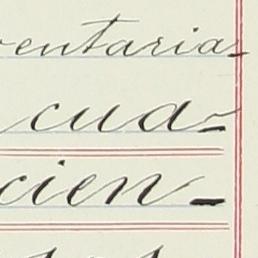 entaria-
cua-
cien-